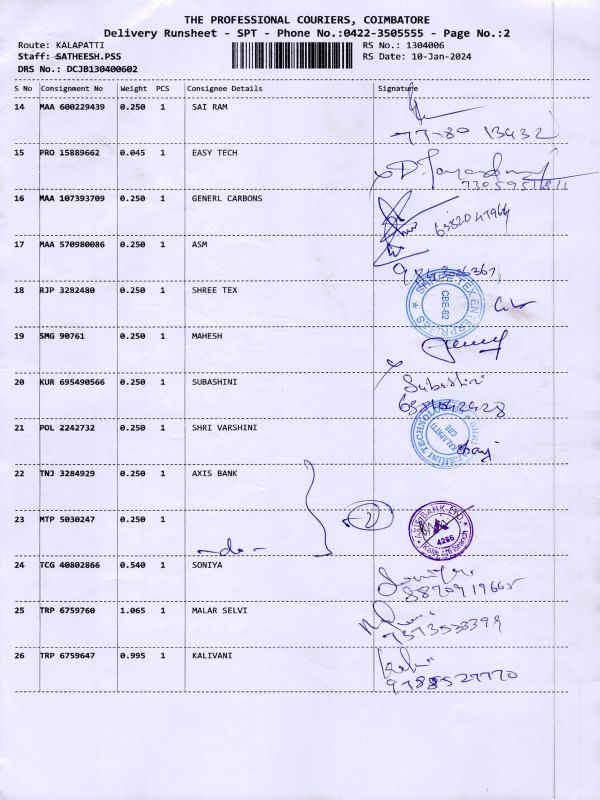 THE PROFESSIONAL COURIERS, COIMBATORE
Delivery Runsheet - SPT - Phone No.:0422-3505555 - Page No.:2
Route: KALAPATTI RS No.: 1304006
Staff: SATHEESH.PSS RS Date: 10-Jan-2024
DRS No.: DCJB130400602
S No Consignment No Weight PCS Consignee Details Signature
14 MAA 600229439 0.250 1 SAI RAM
77-80 13432
15 PRO 15889662 0.045 1 EASY TECH
16 MAA 107393709 0.250 1 GENERL CARBONS
17 MAA 570980086 0.250 1 ASM
18 RJP 3282480 0.250 1 SHREE TEX
SHREE TEX ENTERPRISES
CBE-62
19 SMG 90761 0.250 1 MAHESH
20 KUR 695490566 0.250 1 SUBASHINI
Subashini
21 POL 2242732 0.250 1 SHRI VARSHINI
KALAPATTI
CBE
22 TNJ 3284929 0.250 1 AXIS BANK
23 MTP 5030247 0.250 1
-do-
2
AXIS BANK LTD.
4266
24 TCG 40802866 0.540 1 SONIYA
8870919665
25 TRP 6759760 1.065 1 MALAR SELVI
7373533399
26 TRP 6759647 0.995 1 KALIVANI
9788527770